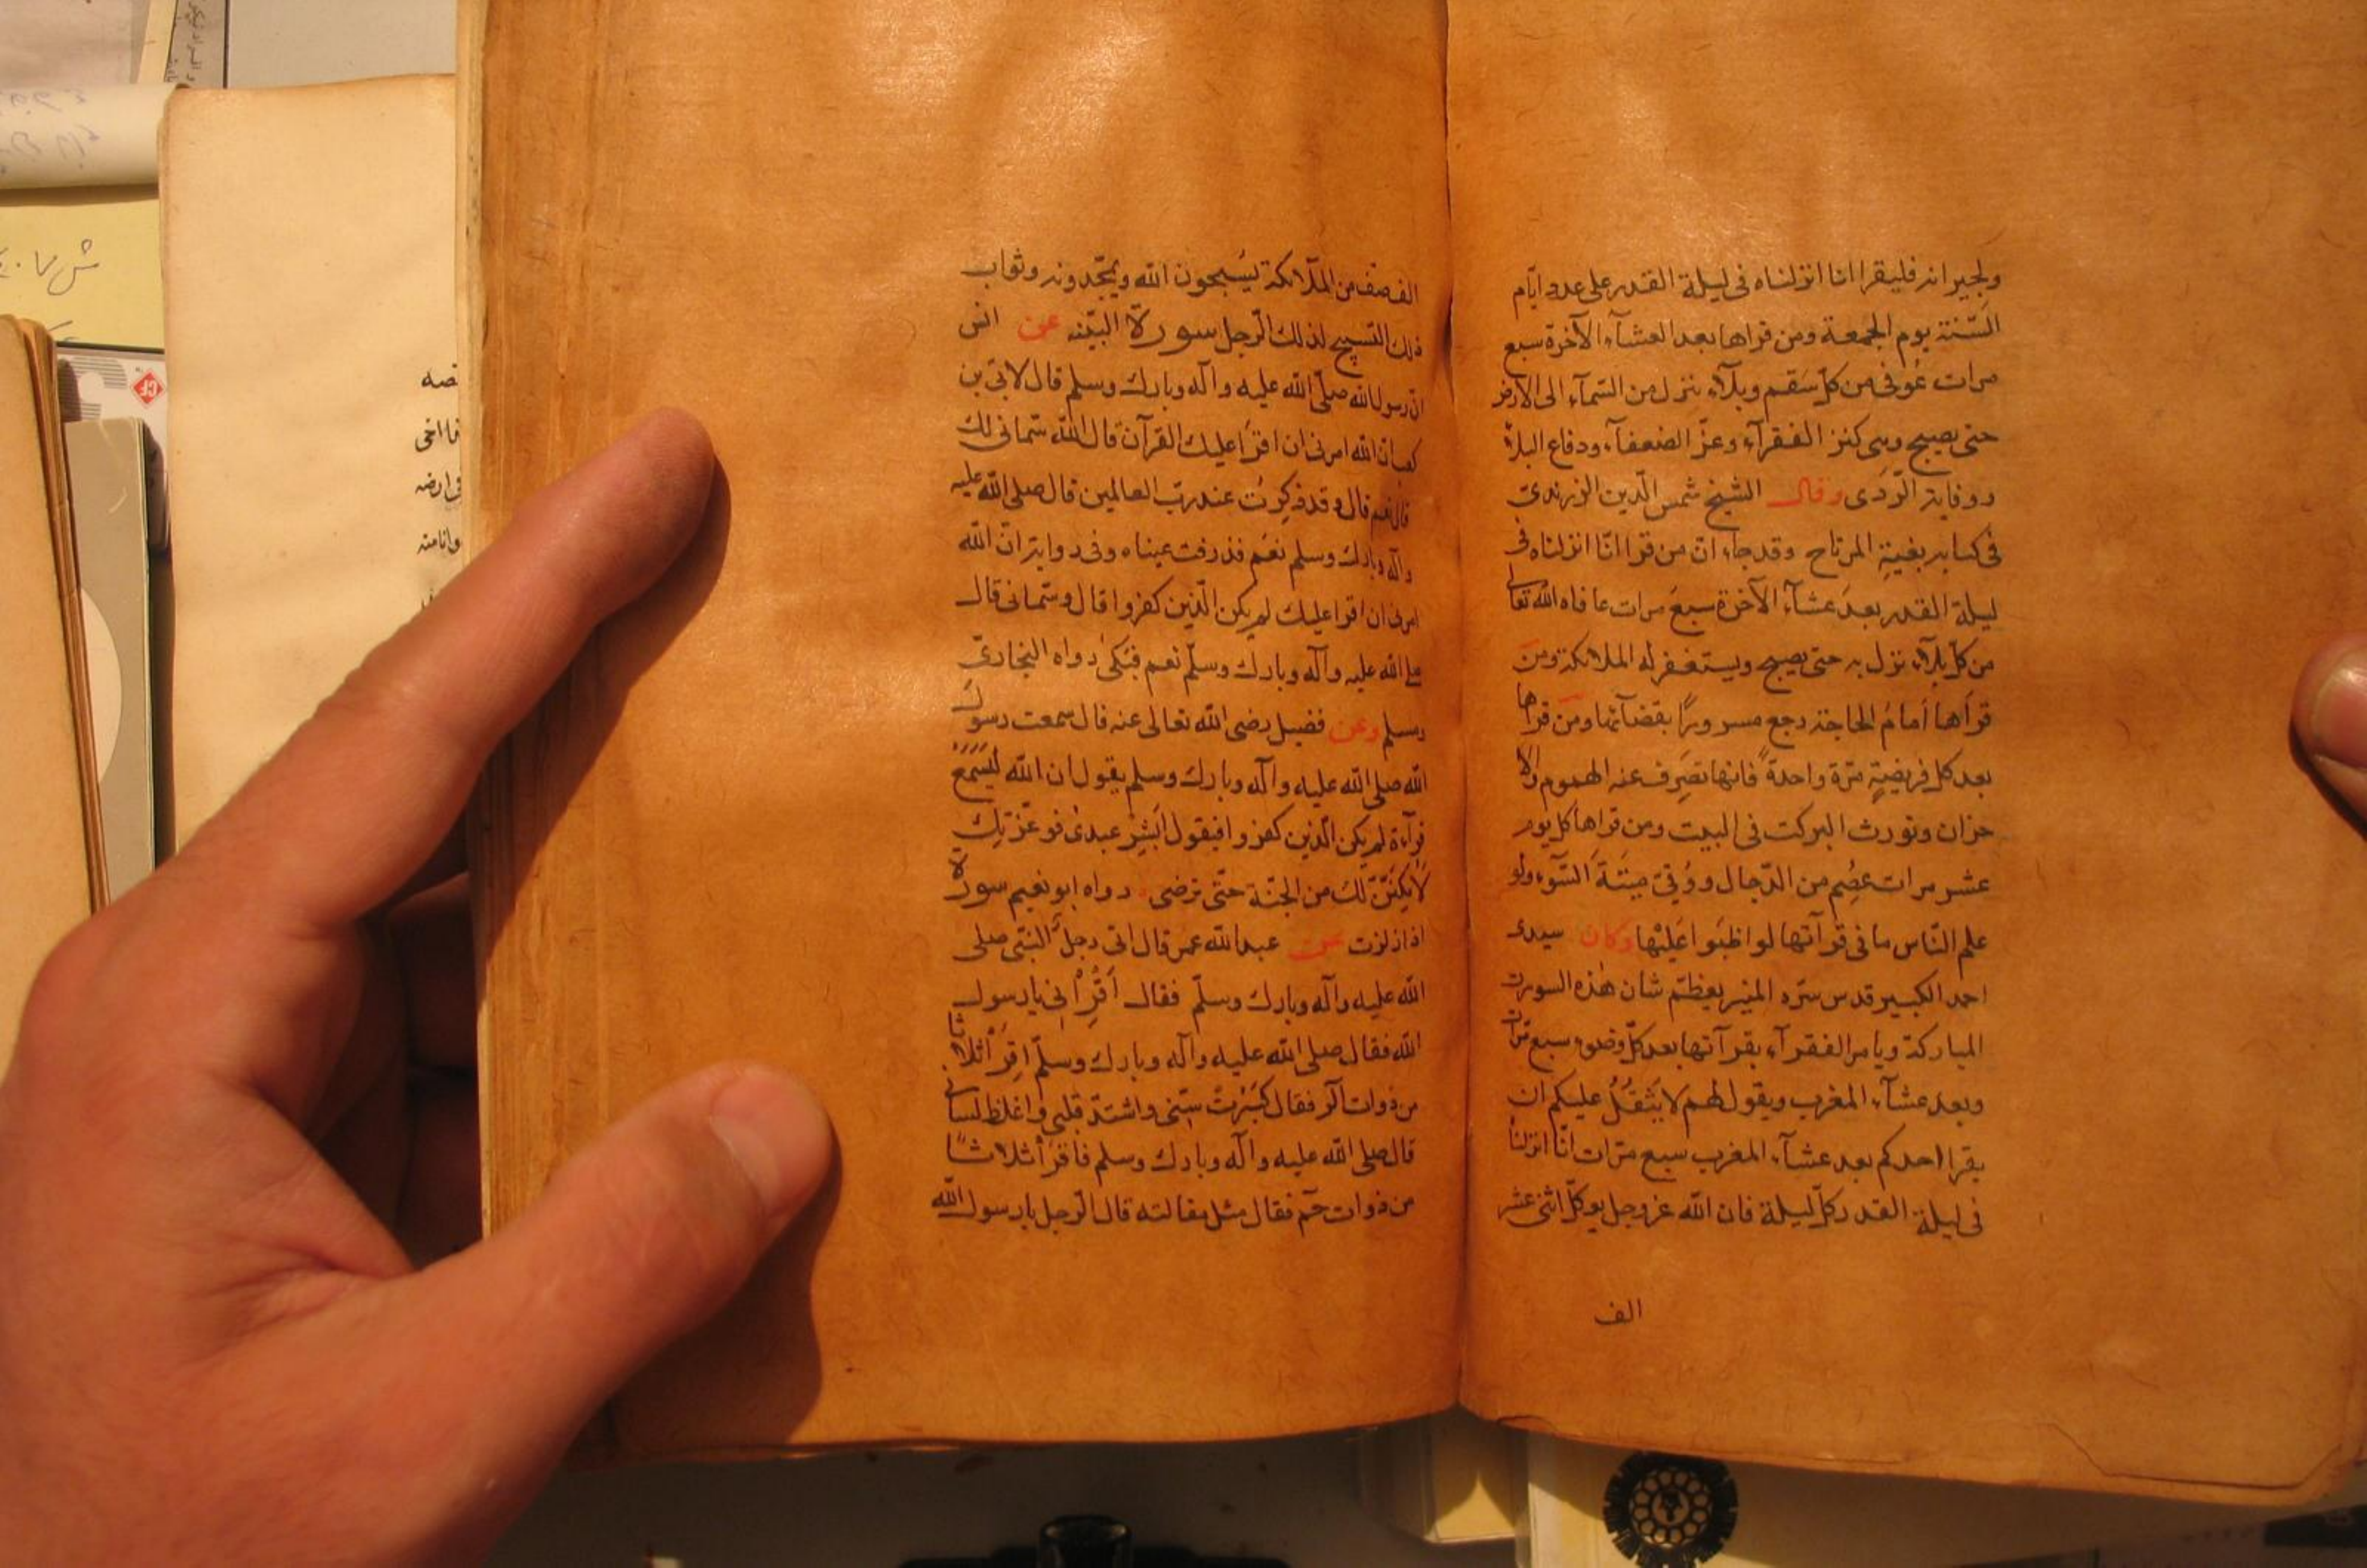 ولجيرانه فليقرا انا انزلناه فى ليلة القدر على عدد ايّام
السّنة يوم الجمعة ومن قراها بعد العشآء الآخرة سبع
مرات عُوفى من كلّ سَقم وبلآء ينزل من السّمآء الى الارض
حتى يصبح وهى كنز الفقرآء وعزّ الضعفآء ودفاع البلآء
ووقاية الرّدى وقال الشيخ شمس الّدين الزرندىّ
فى كتابه بغيةِ المرتاح وقد جاء انّ من قرا انّا انزلناه فى
ليلة القدر بعدَ عشآء الآخرة سبعَ مرات عافاه الله تعالى
من كلّ بلآء نزل به حتى يصبح ويستغفر له الملائكة ومن
قراَها اَمامُ الحاجة رجع مسرورًا بقضآئها ومَن قراها
بعد كل فريضةٍ مرّة واحدةً فانها تصَرِف عنه الهموم والا
حزان وتورث البركت فى البيت ومن قراها كل يوم
عشر مرات عُصِم من الدّجال ووُقىَ ميتَةَ السّوء ولو
علم النّاس ما فى قرآتها لواظبَوا عَليْها وكان سيدى
احمد الكبير قدس سرّه المنير يعظّم شان هٰذه السورت
المباركة ويامر الفقرآء بقرآتها بعد كلّ وضوء سبع مرّات
وبعد عشآء المغرب ويقول لهم لا يَثقُلُ عليكم ان
يقرا احدكم بعد عشآء المغرب سبع مرّات انّا انزلناه
فى ليلة القدر كلّ ليلة فان الله عزوجل يوكلّ اثنى عشر
الف
الف صف من الملآئكة يُسبحون الله ويمجّدونه وثواب
ذلك التّسبيح لذلك الّرجل سورة البيّنه عن انس
انّ رسول الله صلّى الله عليه وآله وبارك وسلم قال لابىّ بن
كعب انّ الله امرنى ان اقرَا عليك القرآن قال الله سمّانى لك
قال نعم قال وقد ذُكِرتُ عند ربّ العالمين قال صلى الله عليه
وآله وبارك وسلم نعَم فذرفت عيناه وفى رواية انّ الله
امرنى ان اقرا عليك لم يكن الّذين كفروا قال وسمّانى قال
صلى الله عليه وآله وبارك وسلّم نعم فبَكىٰ رواه البخارىّ
ومسلم وعن فضيل رضى الله تعالى عنه قال سمعت رسول
الله صلى الله عليه وآله وبارك وسلم يقول ان الله ليَسَمع
قرآءة لم يكن الّذين كفروا فيقول اَبشِرْ عبدىْ فوعزّتِك
لاُمَكِنَنّ لكَ من الجنّة حتّى ترضى رواه ابو نعيم سورة
اذا زلزت عن عبد الله عمر قال اتى رجل النّبىّ صلى
الله عليه وآله وبارك وسلّم فقال اَقْرِأنى يا رسول
الله فقال صلى الله عليه وآله وبارك وسلّم اقِرَأ ثلاثا
من ذوات آلر فقال كبُرَتْ سِنّى واشتدّ قلبى واغلظ لسانى
قال صلى الله عليه وآله وبارك وسلم فاقرَأ ثلاثًا
من ذوات حٓم فقال مثل مقالته قال الّرجل يا رسول الله
صه
فى ارضه